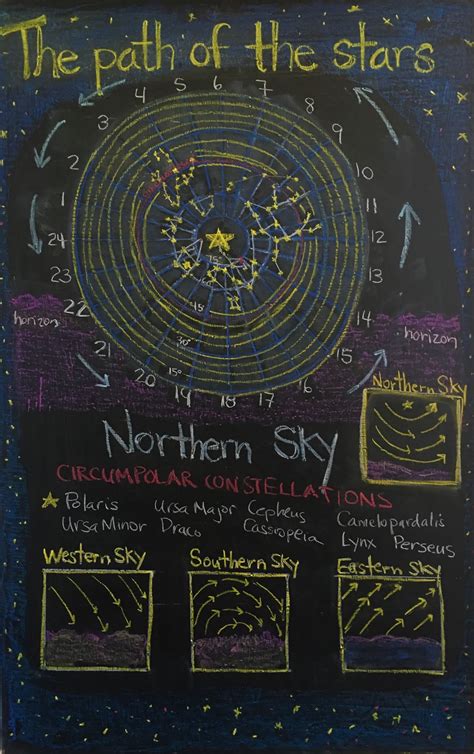 The path of the stars
4 5 6 7 8
3 9
2 10
1 11
24 12
23 13
22 14
horizon horizon
45°
30°
15°
21 15
20 19 18 17 16
Northern Sky
Northern Sky
CIRCUMPOLAR CONSTELLATIONS
Polaris Ursa Major Cepheus Camelopardalis
Ursa Minor Draco Cassiopeia Lynx Perseus
Western Sky Southern Sky Eastern Sky